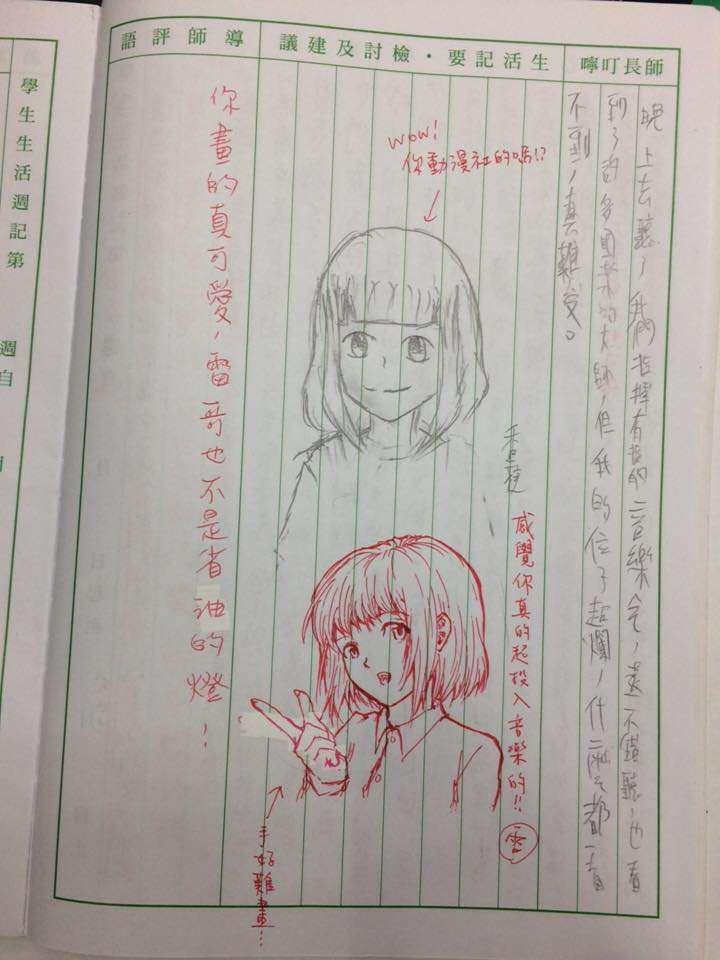 師長叮嚀
生活記要・檢討及建議
導師評語
晚上去聽了我們指揮有指的音樂會,還不錯聽,也看
到了許多國樂的大師,但我的位子超爛,什麼都看
不到,真難受。
wow!
你動漫社的嗎!?
感覺你真的超投入音樂的!!
雷
手好難畫…
你畫的真可愛,雷哥也不是省油的燈!
學生生活週記第
週
自